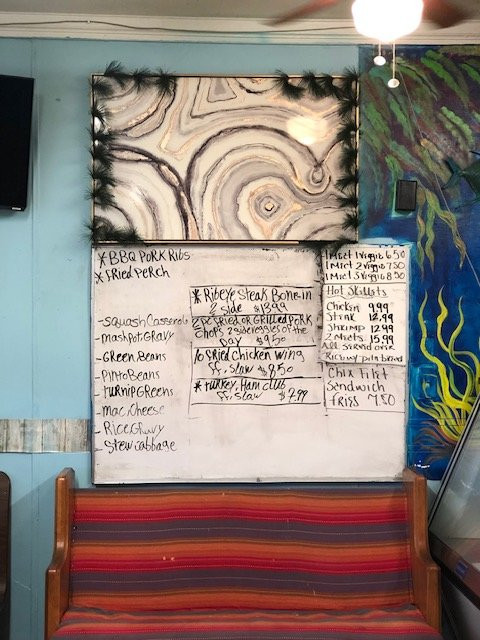 * BBQ PORK RibS
* fried Perch
- SquaSh Casserole
- mashPot.GRavy
- GReen Beans
- Pinto Beans
- tuRnip GReens
- Mac/Cheese
- Rice/GRavy
- Stew cabbage
* Ribeye Steak Bone-in
2 side $13.99
2 pc fried OR GRilled PoRK
Chops 2 side veggies of the
Day $9.50
10 fried Chicken wing
ff, Slaw $8.50
* tuRkey, Ham Club
ff, Slaw $7.99
1 Meat 1 Veggie 6.50
1 Meat 2 Veggie 7.50
1 Meat 3 Veggie 8.50
Hot Skillets
Chicken 9.99
Steak 12.99
Shrimp 12.99
2 Meats 15.99
All Served over
Rice w/ pita bread
Chix Filet
Sandwich
fRies 7.50